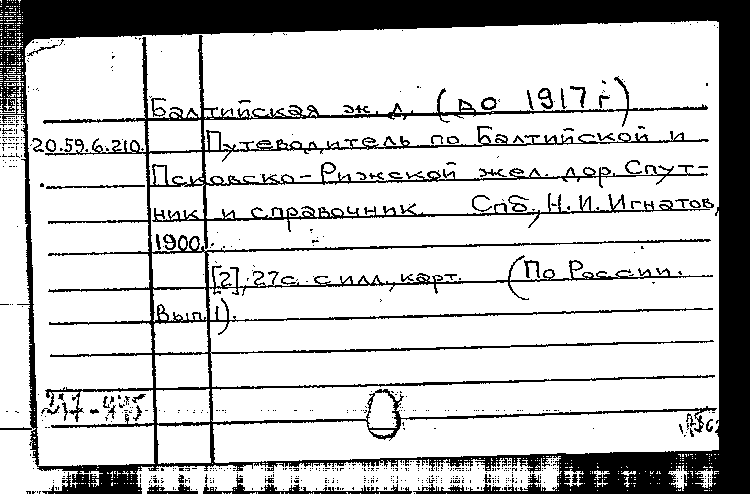 Балтийская ж. д. (до 1917 г)
20.59.6.210. Путеводитель по Балтийской и
Псковско-Рижской жел. дор. Спут-
ник и справочник. Спб., Н. И. Игнатов,
1900.
[2], 27с. с илл., карт. (По России.
Вып. 1).